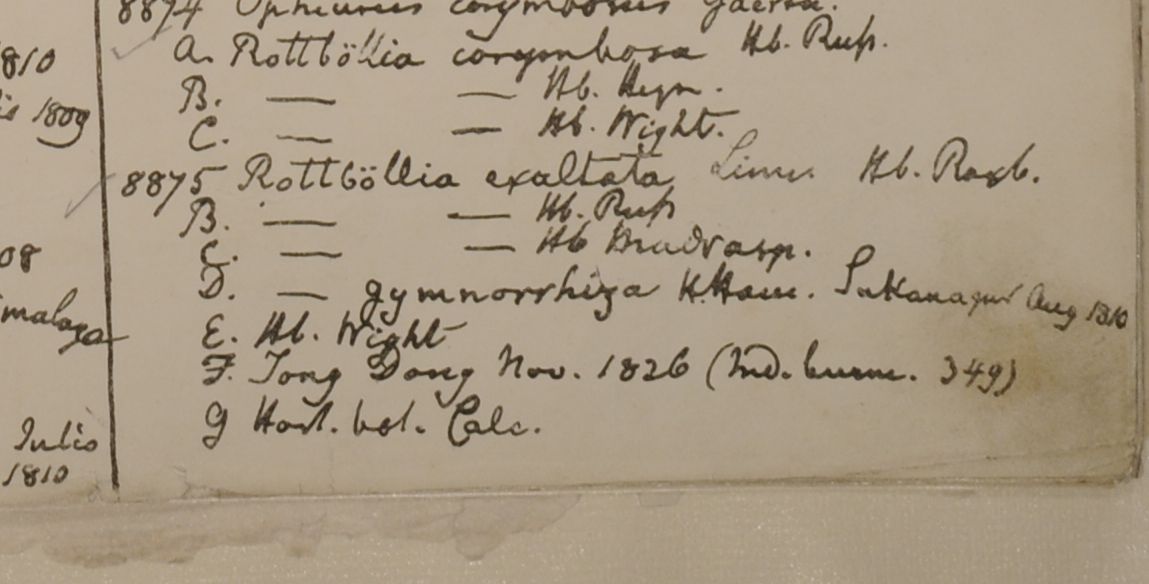 8874 Ophiurus corymbosus Gaertn.
A. Rottböllia corymbosa Hb. Russ.
B. — — Hb. Heyn.
C. — — Hb. Wight.
8875 Rottböllia exaltata Linn. Hb. Roxb.
B. — — Hb. Russ
C. — — Hb Madrasp.
D. — gymnorrhiza H.Ham. Aug 1810
E. Hb. Wight
F. Tong Dong Nov. 1826 (Ind. burm. 349)
G Hort. bot. Calc.
1810
is 1809
08
malaya
Julio
1810